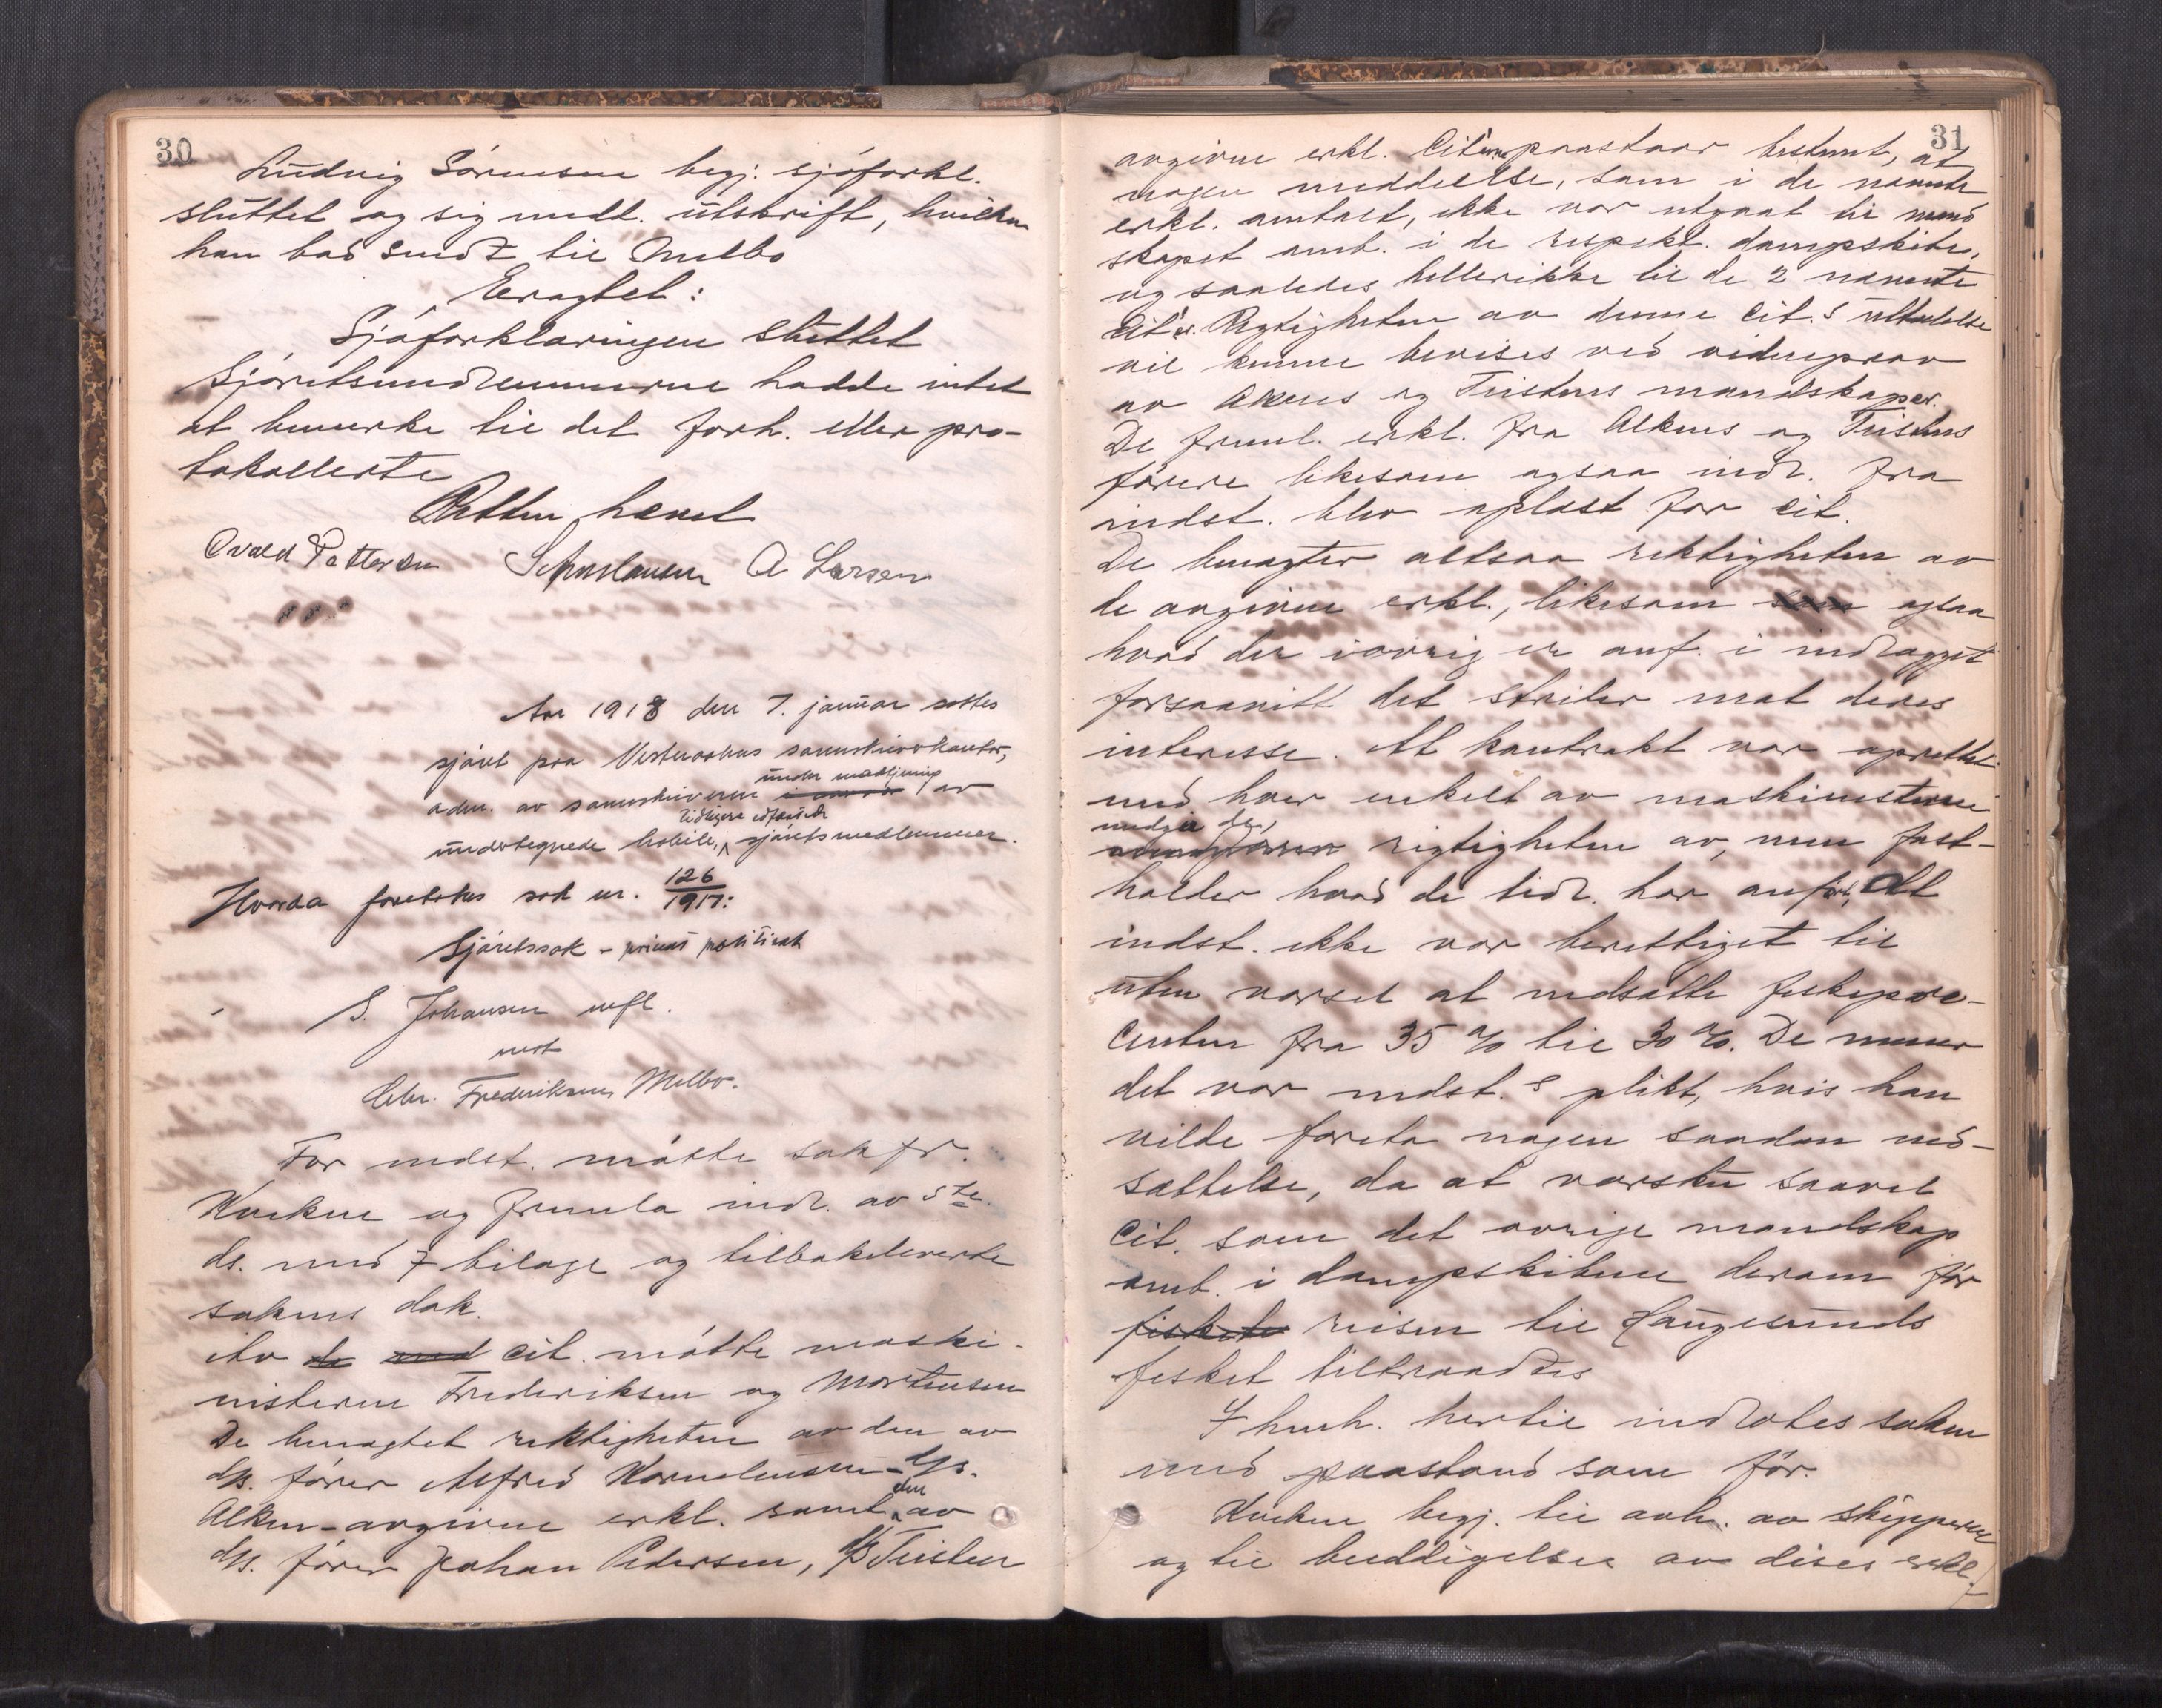 30
Ludvig Sørensen begj. sjøforkl.
sluttet og sig medd. utskrift, hvilken
han bad sendt til Melbo
Eragtet:
Sjøforklaringen sluttet
Sjøretsmedlemmerne hadde intet
at bemerke til det forh. eller pro-
tokollerte
Retten hævet
Ovald Pettersen A Larsen
Aar 1918 den 7. januar sattes
sjøret paa Vesteraalens sorenskriverkontor,
adm. av sorenskriveren under medtjening av
undertegnede tidligere edfæstede sjøretsmedlemmer.
Hvorda foretokes sak nr. 126/1917:
Sjøretssak - privat politisak
S. Johansen mfl.
mot
Chr. Frederiksen, Melbo.
For indst. møtte sakfr.
Kvekne og freml. indl. av 5te
ds. med 7 bilage og tilbakeleverte
sakens dok.
Av de med cit. møtte maski-
nisterne Frederiksen og Mortensen
De benegtet riktigheten av den av
d/s. fører Alfred Kornelius­sen - d/s.
Alken - avgivne erkl. samt den av
d/s. fører Johan Pedersen, d/s Teisten
31
avgivne erkl. Cit'erne paastaar bestemt, at
nogen meddelelse, som i de nævnte
erkl. omtalt, ikke var utgaat til mand
skapet omb. i de respekt. dampskibe,
og saaledes hellerikke til de 2 nævnte
Cit'er. Rigtigheten av denne cit.s uttalelse
vil kunne bevises ved vidneprov
av Alkens og Teistens mandskaper.
De freml. erkl. fra Alkens og Teistens
førere likesom ogsaa indl. fra
indst. blev oplæst for cit.
De benegter altsaa riktigheten av
de avgivne erkl., likesom som ogsaa
hvad der iøvrig er anf. i indlægget
forsaavitt det strider mot deres
interesse. At kontrakt var oprettet
med hver enkelt av maskinisterne
medgir de, rigtigheten av, men fast-
holder hvad de tidl. har anført, at
indst. ikke var berettiget til
uten varsel at nedsætte fiskepro-
centen fra 35 % til 30 %. De mener
det var indst.s plikt, hvis han
vilde foreta nogen saadan ned-
sættelse, da at varsku saavel
Cit. som det øvrige mandskap
omb. i dampskibene derom før
fisket reisen til Haugesunds
fisket tiltraadtes
I henh. hertil indlotes saken
med paastand som før.
Kvekne begj. til avh. av skipperne
og til beedigelse av disses erkl.